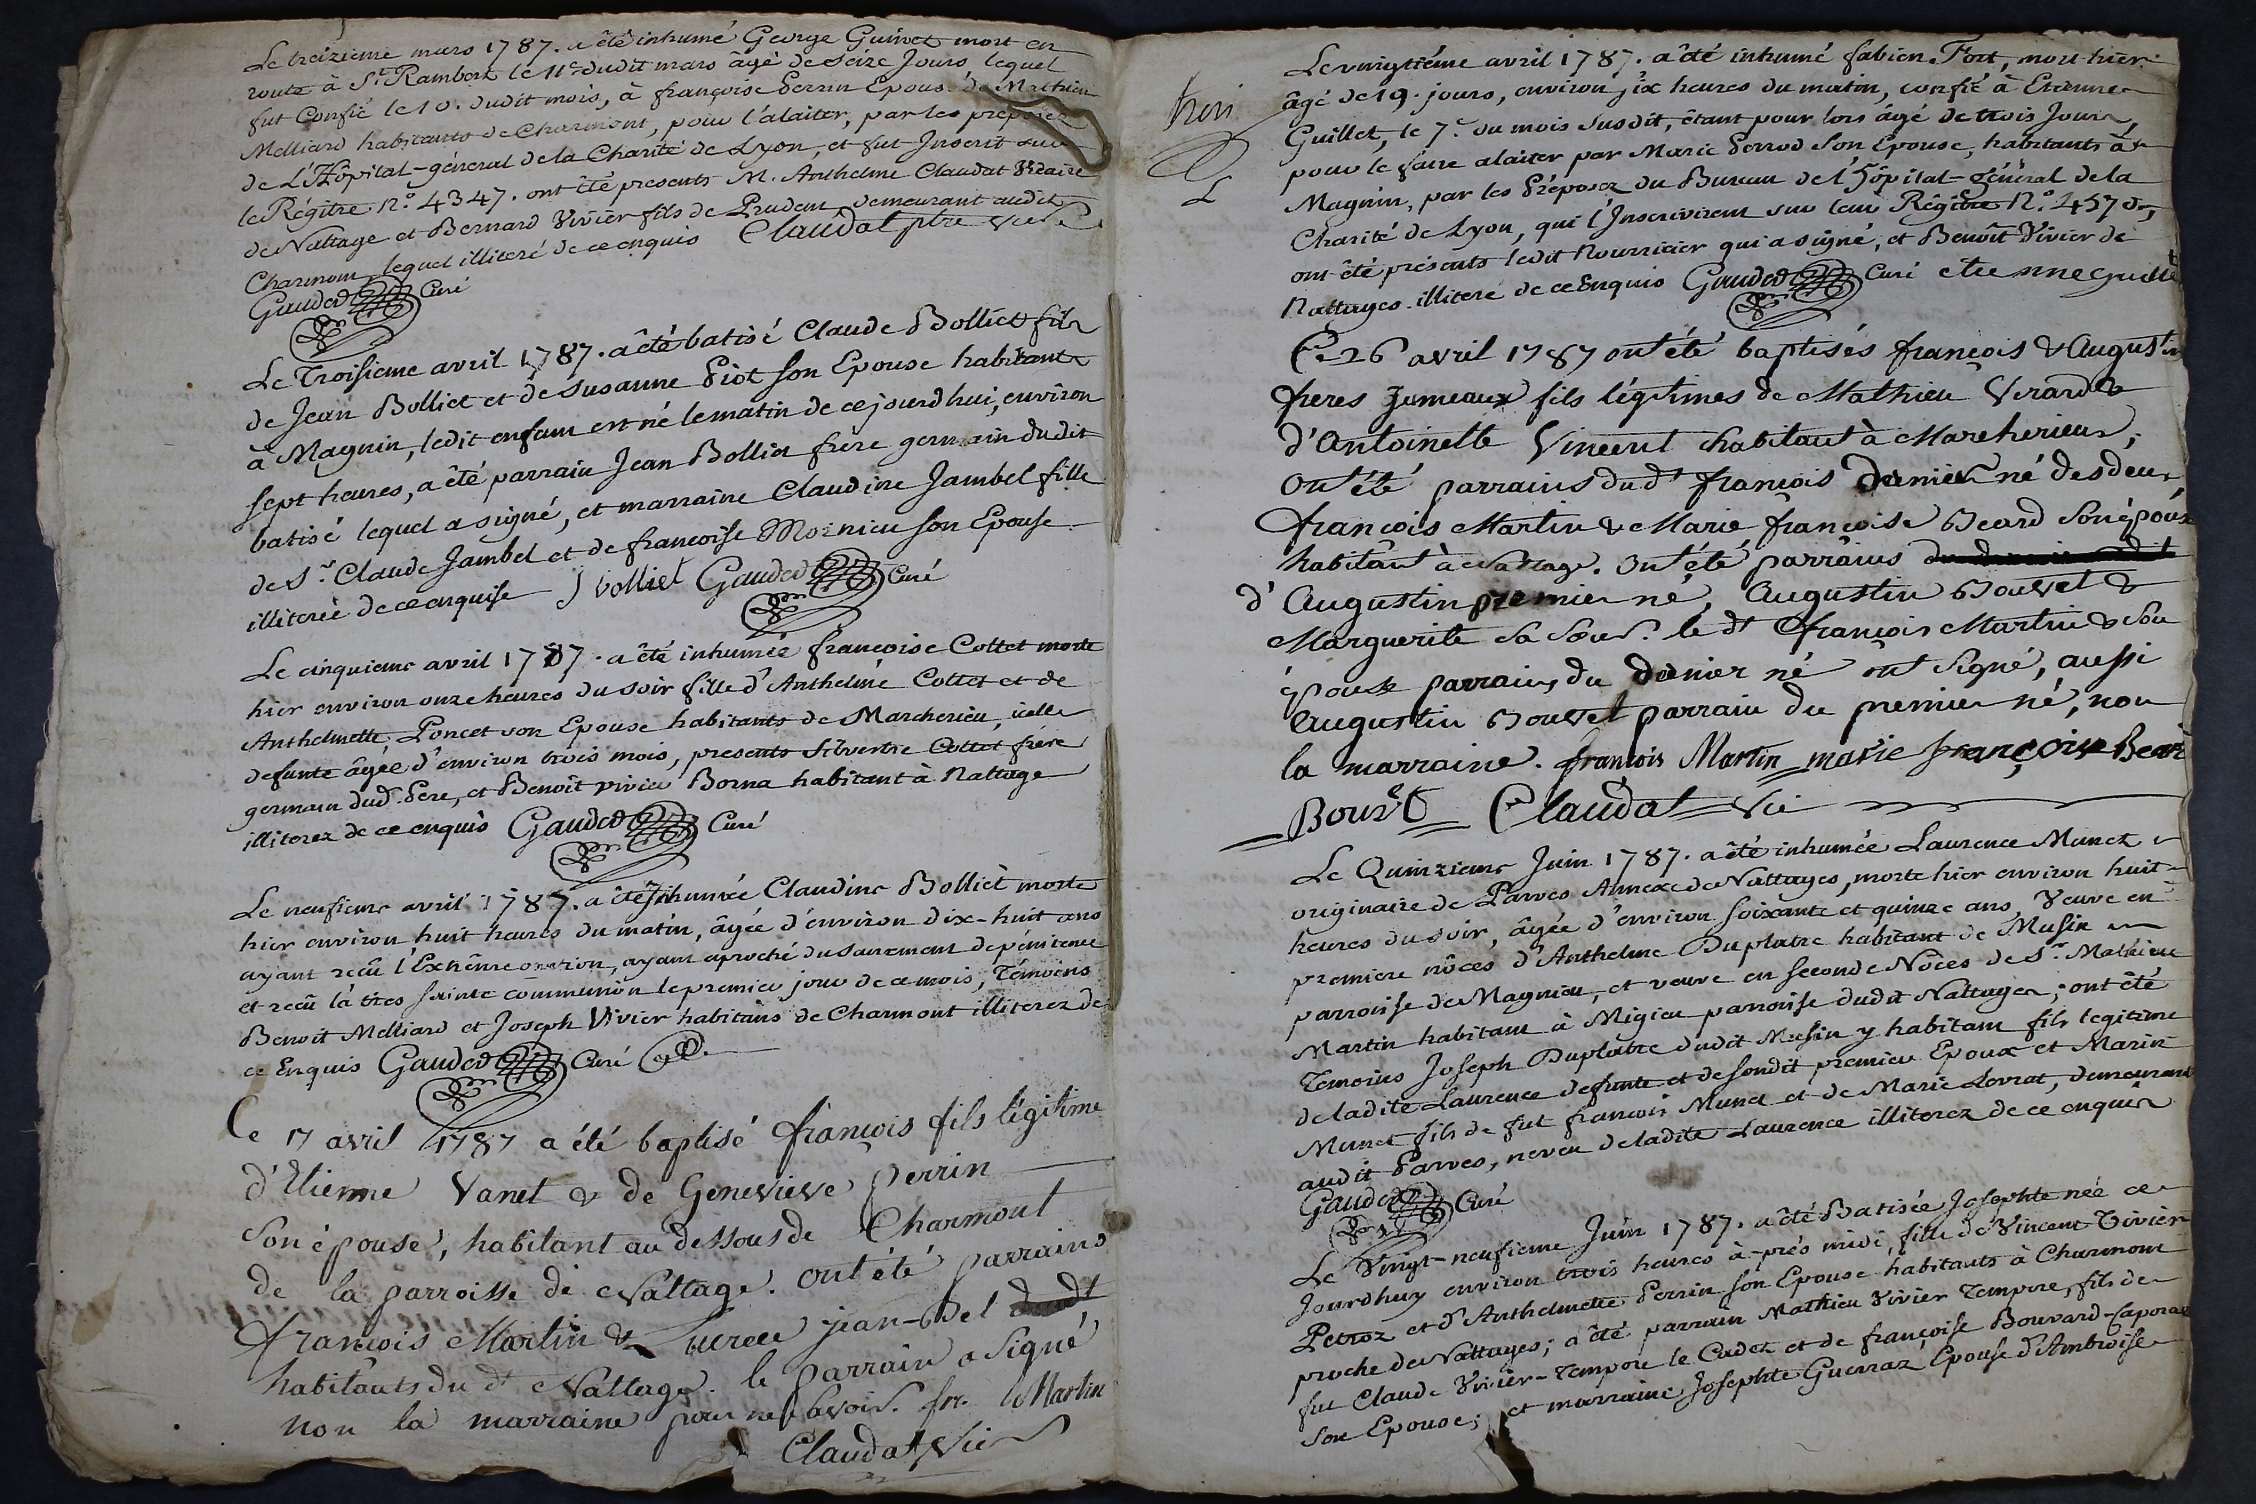 Le treizieme mars 1787. a êté inhumé George Guinet mort en
route à St. Rambert le 11e. dudit mars âgé de seize Jours lequel
fut Confié le 10. dudit mois, à françoise Perrin Epouse de Mathieu
Melliard habitants de Charmont, pour l'alaiter, par les préposez
de L'Hôpital-géneral de la Charité de Lyon, et fut Inscrit sur
le Régitre No. 4347. ont êté presents M. Anthelme Claudat Vicaire
de Nattage et Bernard Vivier fils de Prudent demeurant audit
Charmont lequel illiteré de ce enquis Claudat ptre vic
Gauded Curé
Le Troisieme avril 1787. a êté batisé Claude Bolliet fils
de Jean Bolliet et de Susanne Piot son Epouse habitants
à Magnin, ledit enfant est né le matin de cejourdhui, environ
sept heures, a êté parrain Jean Bolliet frère germain dudit
batisé lequel a signé, et marraine Claudine Jambel fille
de Sr. Claude Jambel et de françoise Moinieu son Epouse
illiterée de ce enquise J volliet Gauded Curé
Le cinquieme avril 1787. a êté inhumée françoise Collet morte
hier environ onze heures du soir fille d'Anthelme Collet et de
Anthelmette Poncet son Epouse habitants de Marcherieu, icelle
defunte âgée d'environ trois mois, presents Silvestre Collet frère
germain dud. Pere, et Benoît vivier Borna habitant à Nattage
illiterez de ce enquis Gauded Curé
Le neufieme avril 1787. a êté Inhumée Claudine Bolliet morte
hier environ huit heures du matin, âgée d'environ dix-huit ans
ayant reçû l'Extrême onction, ayant aproché du sacrement de pénitence
et reçû la très sainte communion le premier jour de ce mois, Témoins
Benoit Melliard et Joseph Vivier habitans de Charmont illiterez de
ce Enquis Gauded Curé
Ce 17 avril 1787 a été baptisé françois fils légitime
d'Etienne Vanet & de Genevieve perrin
son épouse, habitant au dessous de Charmont
de la parroisse de Nattage. ont été parrains
françois Martin & Lucrece jean-del
habitants du dt Nattage. le parrain a signé
non la marraine pour ne savoir. fr. Martin
Claudat Vic
trois
Le vingtiéme avril 1787. a êté inhumé fabien Fort, mort hier
âgé de 19. jours, environ six heures du matin, confié à Etienne
Guillet, le 7e. du mois susdit, êtant pour lors âgé de trois Jours,
pour le faire alaiter par Marie Perrod son Epouse, habitants à
Magnin, par les Préposez du Bureau de l'Hôpital-général de la
Charité de Lyon, qui l'Inscrivirent sur leur Régître No. 4570,
ont êté présents ledit Nourricier qui a signé, et Benoît Vivier de
Nattages illiteré de ce Enquis Gauded Curé etienne guillet
Ce 26 avril 1787 ont été baptisés françois & Augustin
freres Jumeaux fils légitimes de Mathieu Verard &
d'Antoinette Vincent habitant à Marcherieu,
ont été parrains du dt françois dernier né des deux
françois Martin & Marie françoise Beard son épouse
habitant à Nattage. ont été parrains
d'Augustin premier né, Augustin Bouvet &
Marguerite sa soeur. le dt françois Martin & son
épouse parrains du dernier né ont signé, aussi
Augustin Bouvet parrain du premier né, non
la marraine. françois Martin marie françoise Beard
Bouvet Claudat Vic
Le Quinzieme Juin 1787. a êté inhumée Laurence Munet
originaire de Parves Annexe de Nattages, morte hier environ huit
heures du soir, âgée d'environ soixante et quinze ans, Veuve en
premiere nôces d'Anthelme Duplatre habitant de Musin
parroisse de Magnieu, et veuve en seconde Nôces de Sr. Mathieu
Martin habitant à Migieu parroisse dudit Nattages; ont êté
Temoins Joseph Duplatre dudit Musin y habitant fils legitime
de ladite Laurence defunte et de sondit premier Epoux et Marin
Munet fils de fut françois Munet et de Marie Levrat, demeurant
audit Parves, neveu de ladite Laurence illiterez de ce enquis
Gauded Curé
Le Vingt-neufieme Juin 1787. a êté Batisée Josephte née ce
Jourdhuy environ trois heures à-près midi, fille de Vincent Vivier
Petroz et d'Anthelmette Perrin son Epouse habitants à Charmont
proche de Nattages; a êté parrain Mathieu Vivier Tempore, fils de
fut Claude Vivier-Tempore le Cadet et de françoise Bouvard-Caporal
son Epouse; et marraine Josephte Guerraz Epouse d'Ambroise